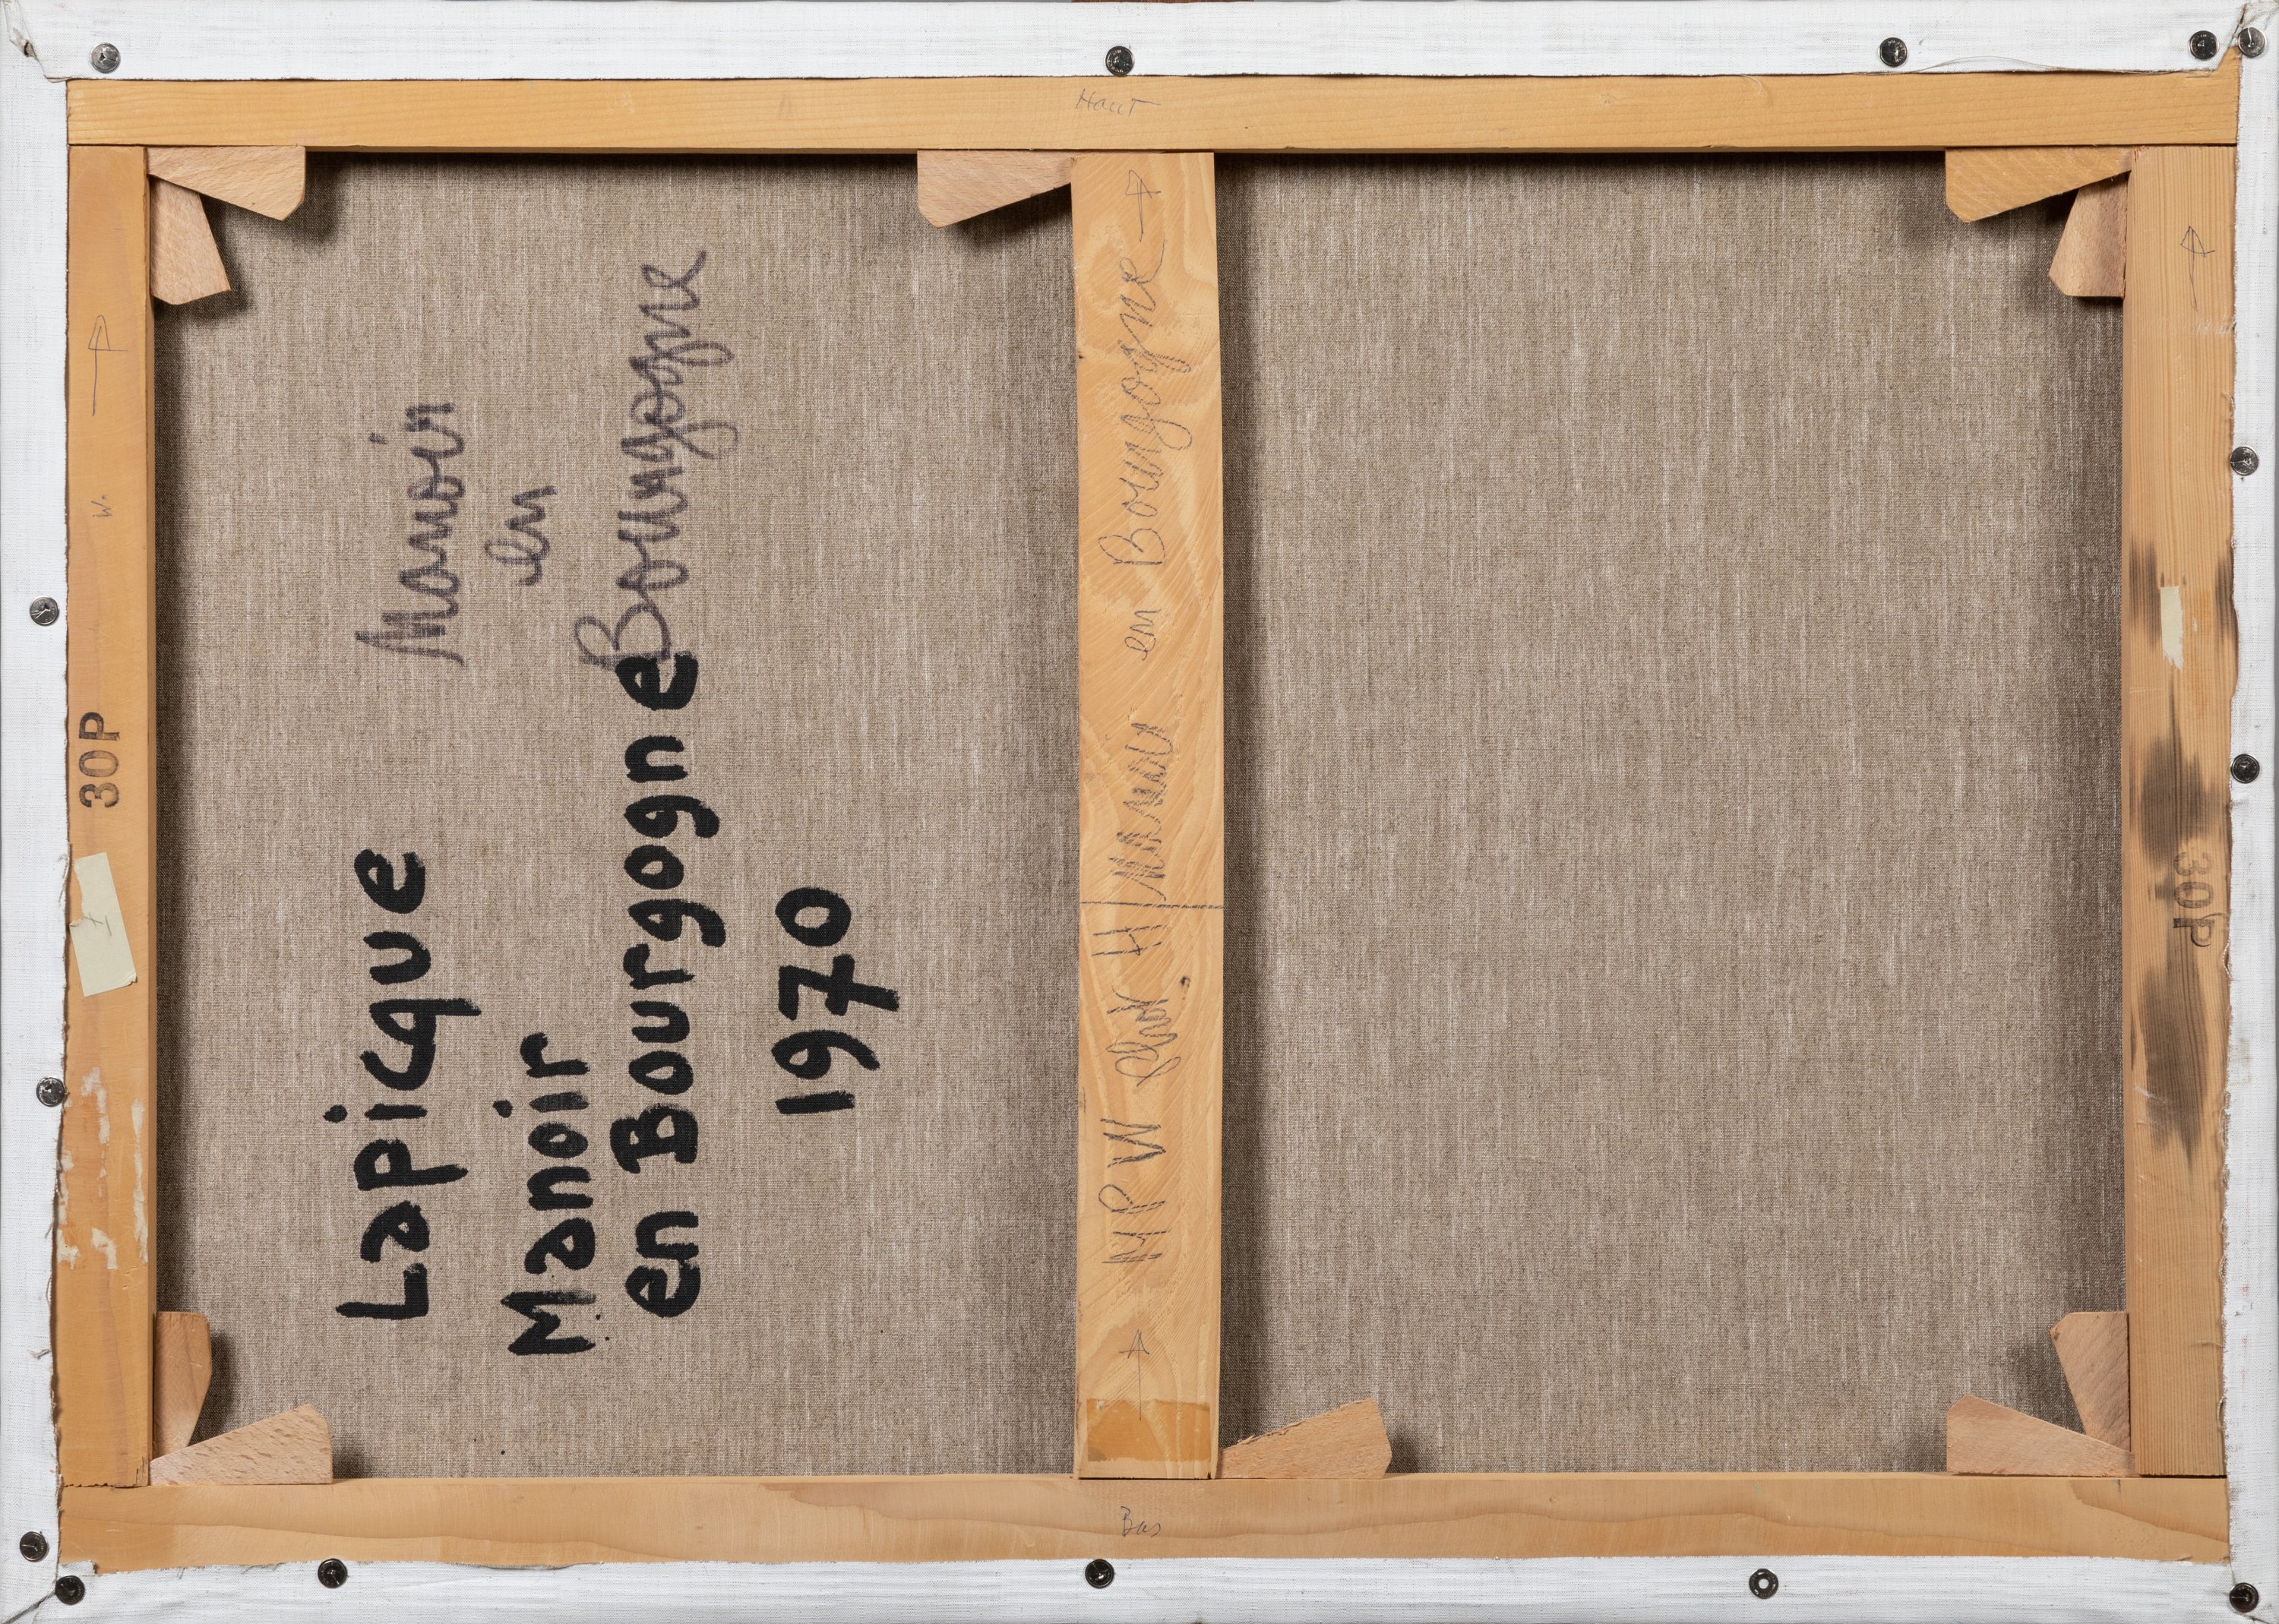 Haut
Manoir
en
Bourgogne
Lapicque
Manoir
en Bourgogne
1970
en Bourgogne
W.
30P
30P
Bas